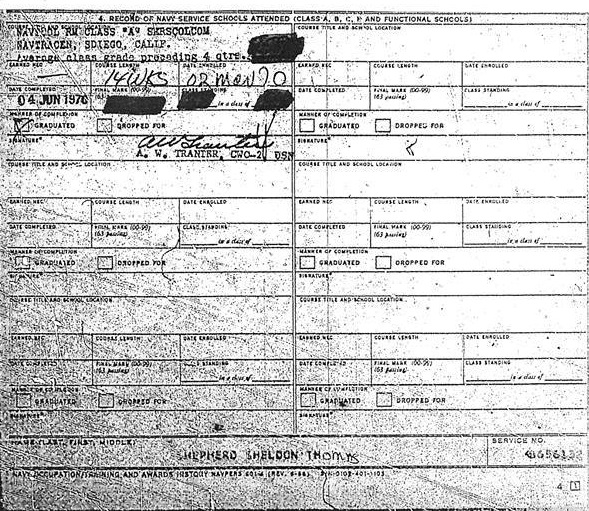 4. RECORD OF NAVY SERVICE SCHOOLS ATTENDED (CLASS A, B, C, P AND FUNCTIONAL SCHOOLS)
RM CLASS "A" SERSCOLCOM COURSE TITLE AND SCHOOL LOCATION
NAVTRACEN, SDIEGO, CALIF.
Average class grade preceding 4 qtrs.
EARNED NEC COURSE LENGTH DATE ENROLLED EARNED NEC COURSE LENGTH DATE ENROLLED
14 WKS 02 Mar 70
DATE COMPLETED FINAL MARK (00-99) (63 passing) DATE COMPLETED FINAL MARK (00-99) (63 passing) CLASS STANDING
04 JUN 1970 in a class of in a class of
MANNER OF COMPLETION MANNER OF COMPLETION
GRADUATED DROPPED FOR GRADUATED DROPPED FOR
SIGNATURE* SIGNATURE*
A. W. TRANTER, CWO-2, USN
COURSE TITLE AND SCHOOL LOCATION COURSE TITLE AND SCHOOL LOCATION
EARNED NEC COURSE LENGTH DATE ENROLLED EARNED NEC COURSE LENGTH DATE ENROLLED
DATE COMPLETED FINAL MARK (00-99) (63 passing) CLASS STANDING DATE COMPLETED FINAL MARK (00-99) (63 passing) CLASS STANDING
in a class of in a class of
MANNER OF COMPLETION MANNER OF COMPLETION
GRADUATED DROPPED FOR GRADUATED DROPPED FOR
SIGNATURE* SIGNATURE*
COURSE TITLE AND SCHOOL LOCATION COURSE TITLE AND SCHOOL LOCATION
EARNED NEC COURSE LENGTH DATE ENROLLED EARNED NEC COURSE LENGTH DATE ENROLLED
DATE COMPLETED FINAL MARK (00-99) (63 passing) CLASS STANDING DATE COMPLETED FINAL MARK (00-99) (63 passing) CLASS STANDING
in a class of in a class of
MANNER OF COMPLETION MANNER OF COMPLETION
GRADUATED DROPPED FOR GRADUATED DROPPED FOR
SIGNATURE* SIGNATURE*
NAME (LAST, FIRST, MIDDLE) SERVICE NO.
SHEPHERD SHELDON THOMAS
NAVY OCCUPATION/TRAINING AND AWARDS HISTORY NAVPERS
4